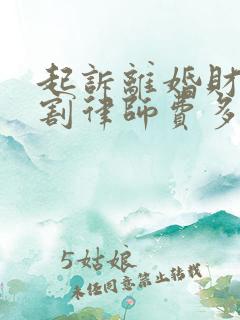 起訴離婚財
割律師費多
5姑娘
未經同意禁止转载